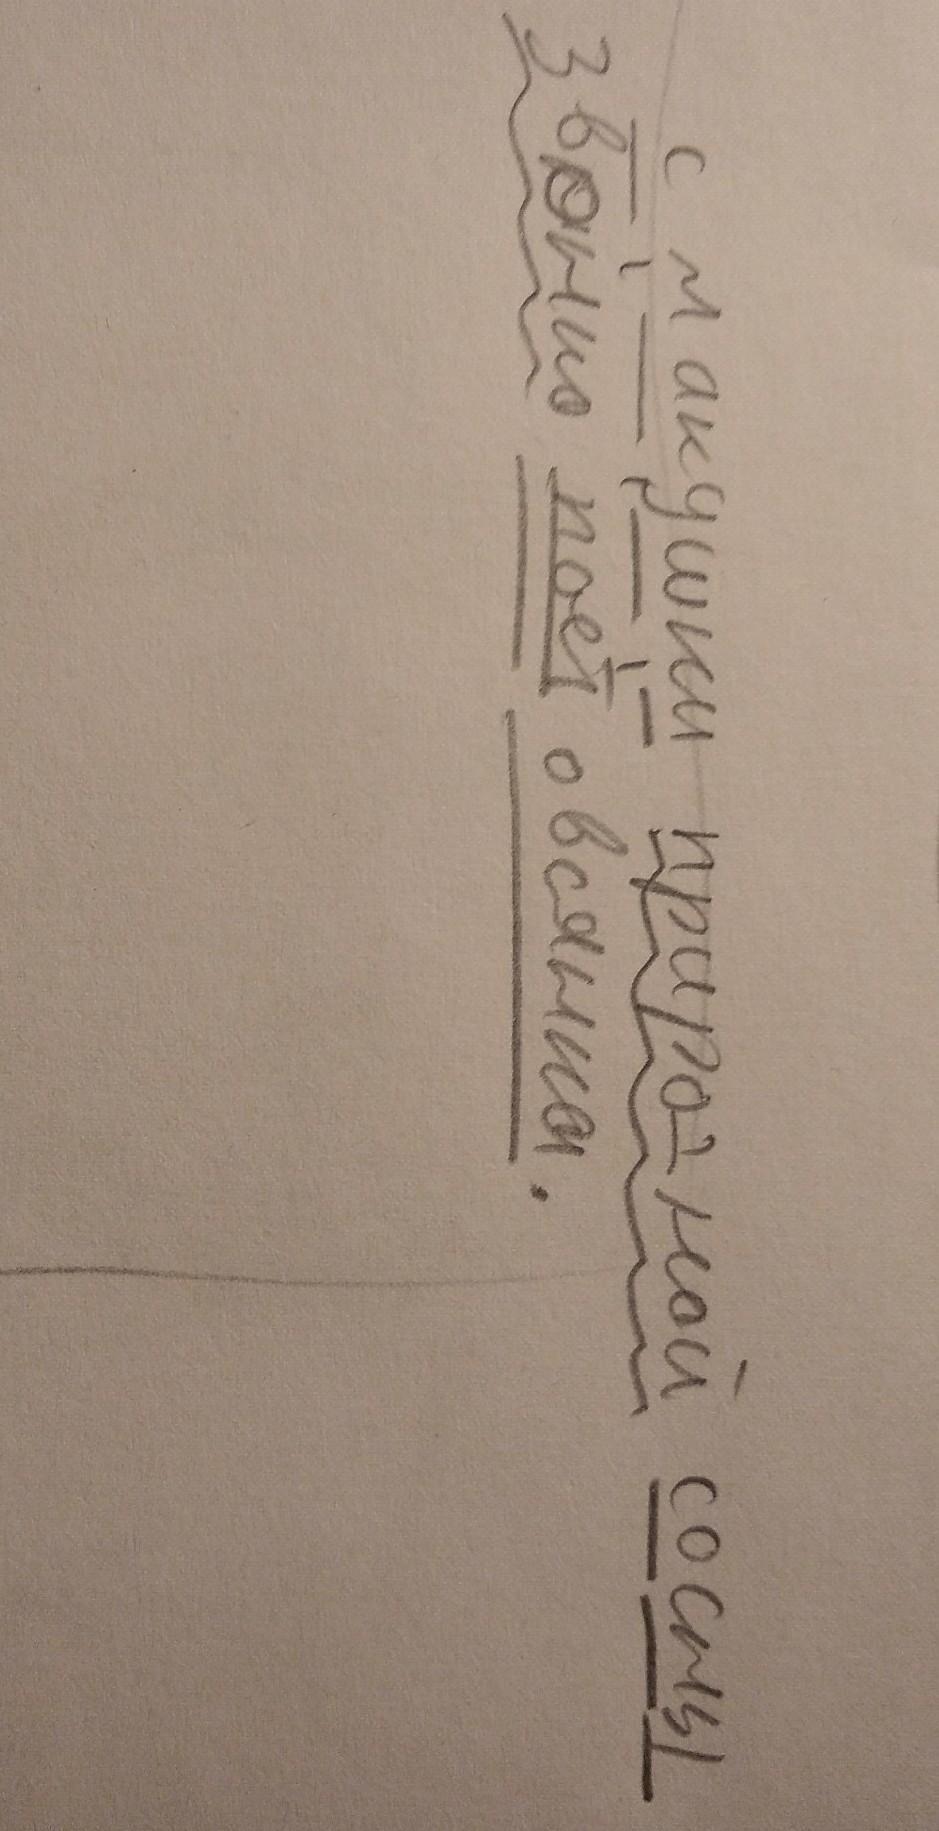 с макушки природной сосны
Звонко поет овсянка.